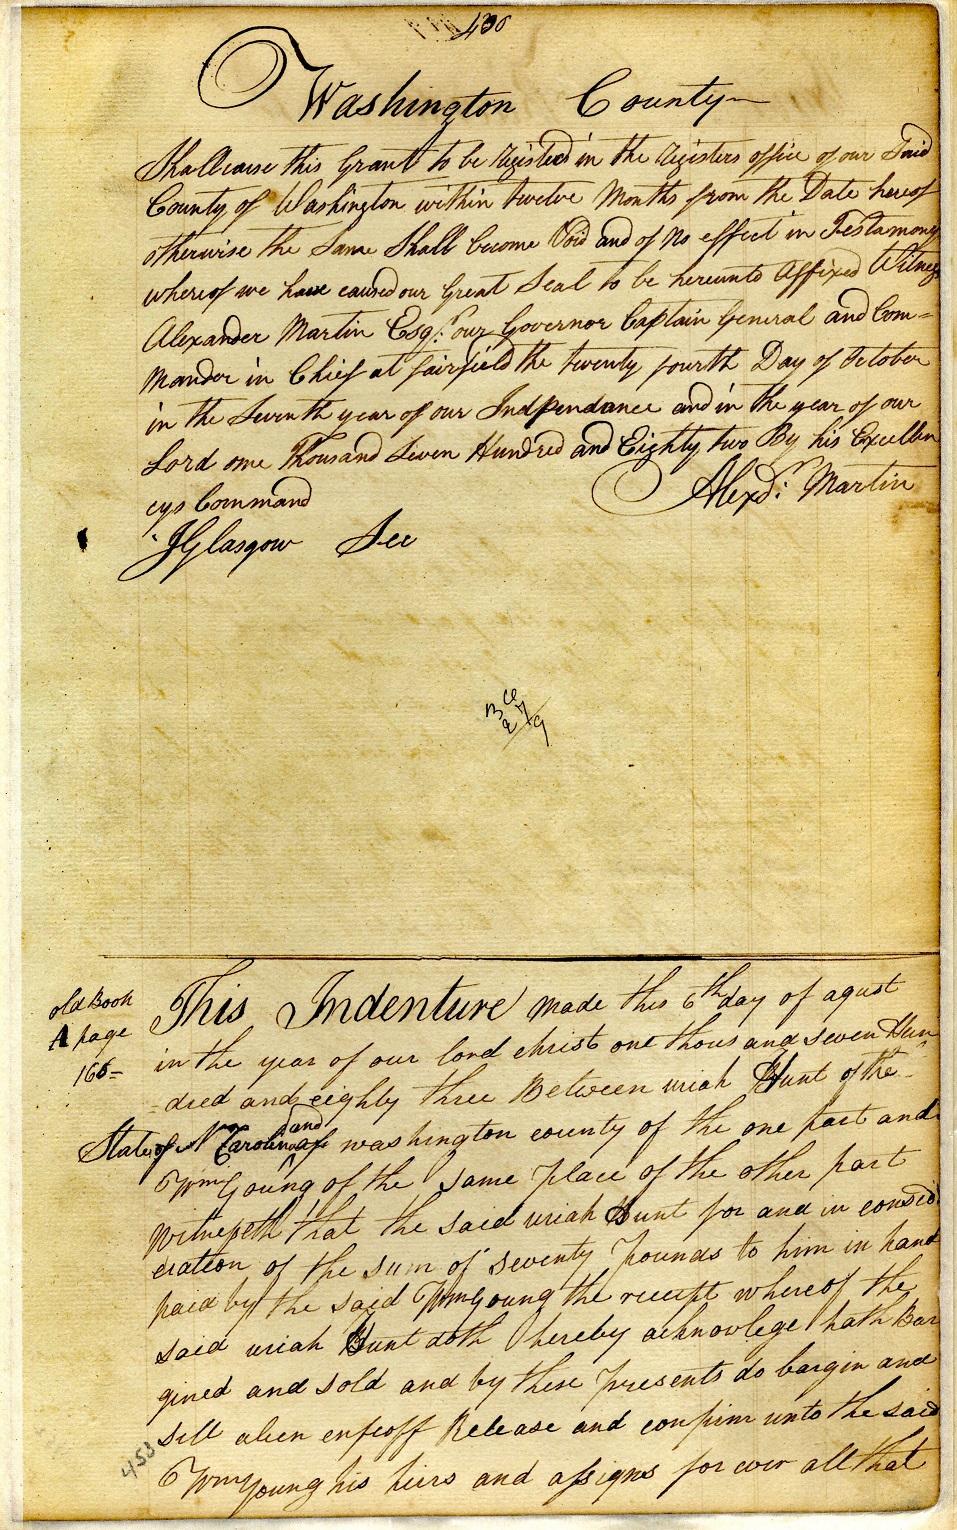 406
Washington County
Shall cause this Grant to be Registered in the Registers office of our Said
County of Washington within twelve Months from the Date hereof
otherwise the Same Shall become Void and of No effect in Testamony
whereof we have caused our Great Seal to be hereunto Affixed Witness
Alexander Martin Esqr. our Governor Captain General and Com=
mander in Chief at fairfield the twenty fourth Day of October
in the Seventh year of our Indpendance and in the year of our
Lord one Thousand Seven Hundred and Eighty two By his Excellen
cys Command Alexdr: Martin
JGlasgow Sec
old Book
A page
166=
This Indenture made this 6th day of agust
in the year of our lord christ one thousand seven Hun
=dred and eighty three Between uriah Hunt of the
State of N Carolina and of washington county of the one part and
Wm Young of the same place of the other part
Witnesseth that the said uriah Hunt for and in consid
eration of the sum of seventy pounds to him in hand
paid by the said Wm Young the receipt whereof the
said uriah Hunt doth hereby acknowlege hath Bar
gined and sold and by these presents do bargin and
sell alien enfeoff Release and confirm unto the said
Wm Young his heirs and assigns for ever all that
453